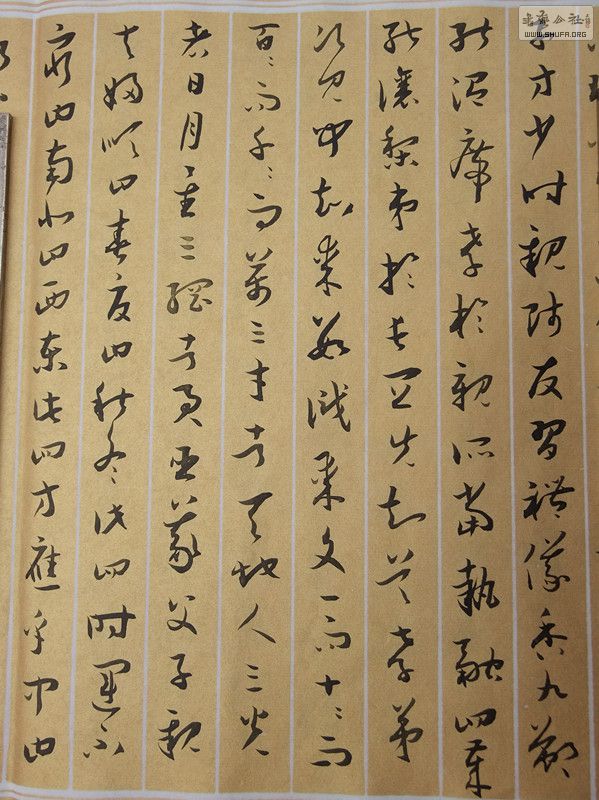 子方少时親師友習禮儀香九齡
能温席孝於親所當執融四歲
能讓梨弟於長宜先知首孝弟
次見聞知某數識某文一而十〻而
百〻而千〻而萬三才者天地人三光
者日月星三綱者君臣義父子親
夫婦順曰春夏曰秋冬此四時運不
窮曰南北曰西東此四方應乎中曰
書法公社
WWW.SHUFA.ORG